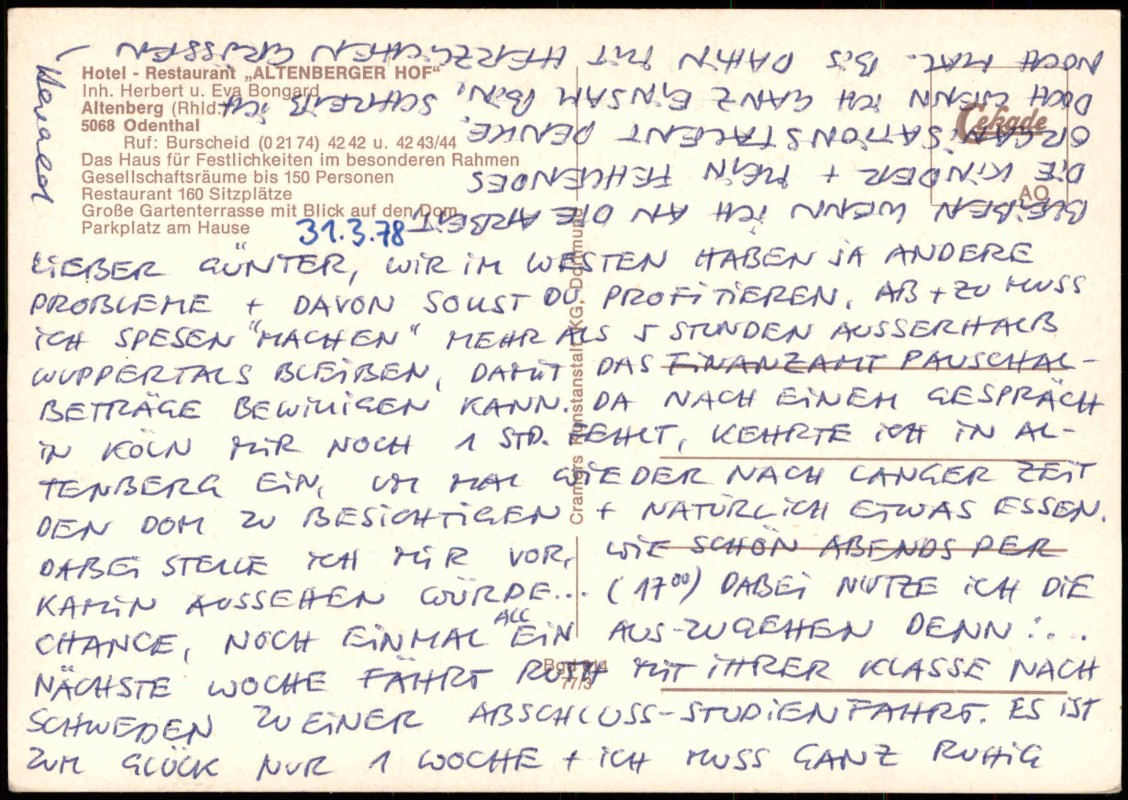 Hotel - Restaurant „ALTENBERGER HOF“
Inh. Herbert u. Eva Bongard
Altenberg (Rhld.)
5068 Odenthal
Ruf: Burscheid (0 21 74) 42 42 u. 42 43/44
Das Haus für Festlichkeiten im besonderen Rahmen
Gesellschaftsräume bis 150 Personen
Restaurant 160 Sitzplätze
Große Gartenterrasse mit Blick auf den Dom
Parkplatz am Hause
Cekade
AO
Cramers Kunstanstalt KG, Dortmund
77/3
31.3.78
LIEBER GÜNTER, WIR IM WESTEN HABEN JA ANDERE
PROBLEME + DAVON SOLLST DU PROFITIEREN. AB + ZU MUSS
ICH SPESEN "MACHEN" MEHR ALS 5 STUNDEN AUSSERHALB
WUPPERTALS BLEIBEN, DAMIT DAS FINANZAMT PAUSCHAL-
BETRÄGE BEWILLIGEN KANN. DA NACH EINEM GESPRÄCH
IN KÖLN MIR NOCH 1 STD. FEHLT, KEHRTE ICH IN AL-
TENBERG EIN, UM MAL WIEDER NACH LANGER ZEIT
DEN DOM ZU BESICHTIGEN + NATÜRLICH ETWAS ESSEN.
DABEI STELLE ICH MIR VOR, WIE SCHÖN ABENDS PER
KAMIN AUSSEHEN WÜRDE... (17⁰⁰) DABEI NUTZE ICH DIE
CHANCE, NOCH EINMAL ALLEIN AUS-ZUGEHEN DENN:...
NÄCHSTE WOCHE FÄHRT RUTH MIT IHRER KLASSE NACH
SCHWEDEN ZU EINER ABSCHLUSS-STUDIENFAHRT. ES IST
ZUM GLÜCK NUR 1 WOCHE + ICH MUSS GANZ RUHIG
BLEIBEN WENN ICH AN DIE ARBEIT
DIE KINDER + MEIN FEHLENDES
ORGANISATIONSTALENT DENKE.
DOCH WENN ICH GANZ EINSAM BIN, SCHREIB ICH
NOCH MAL. BIS DAHIN MIT HERZLICHEN GRÜSSEN